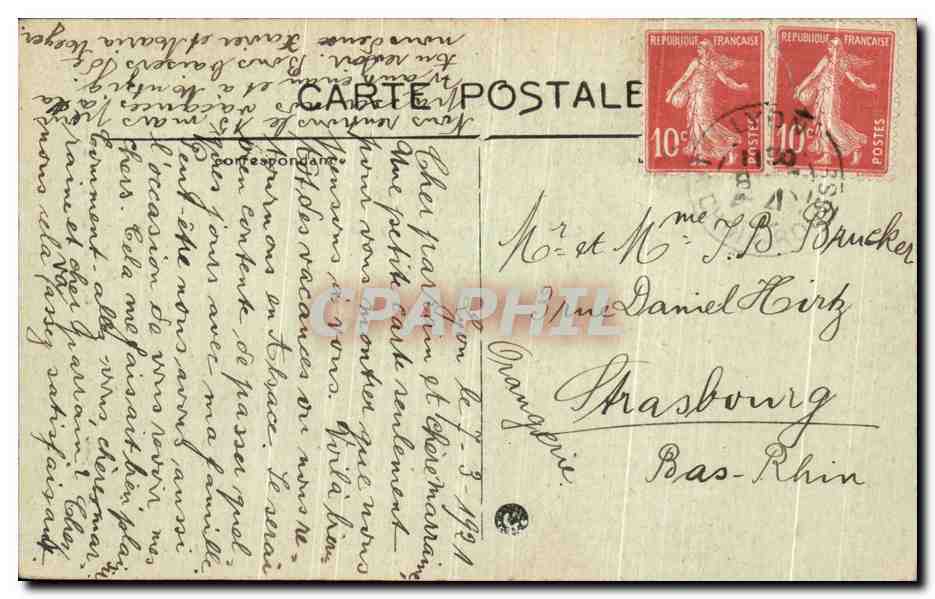 CARTE POSTALE
Correspondance
REPUBLIQUE FRANÇAISE
10c POSTES
REPUBLIQUE FRANÇAISE
10c POSTES
LYON
Mr et Mme J. B. Brucker
3 rue Daniel Hirtz
Orangerie
Strasbourg
Bas-Rhin
Lyon le 7-3-1921
Cher parrain et chère marraine
Une petite carte seulement
pour vous montrer que nous
pensons à vous. Voilà bien
tôt des vacances où nous re=
tournons en Alsace. Je serai
bien contente de passer quel
ques jours avec ma famille.
Peut-être nous avons aussi
l'occasion de vous revoir, mes
chers. Cela me faisait bien plai
Comment allez-vous, chère mar
raine et cher parrain? Cher
nous cela va assez satisfaisant
Nous rentrons le 15 mars
vacances
Au revoir. Bons baisers de
nous deux Xavier et Maria Meyer.
CPAPHIL